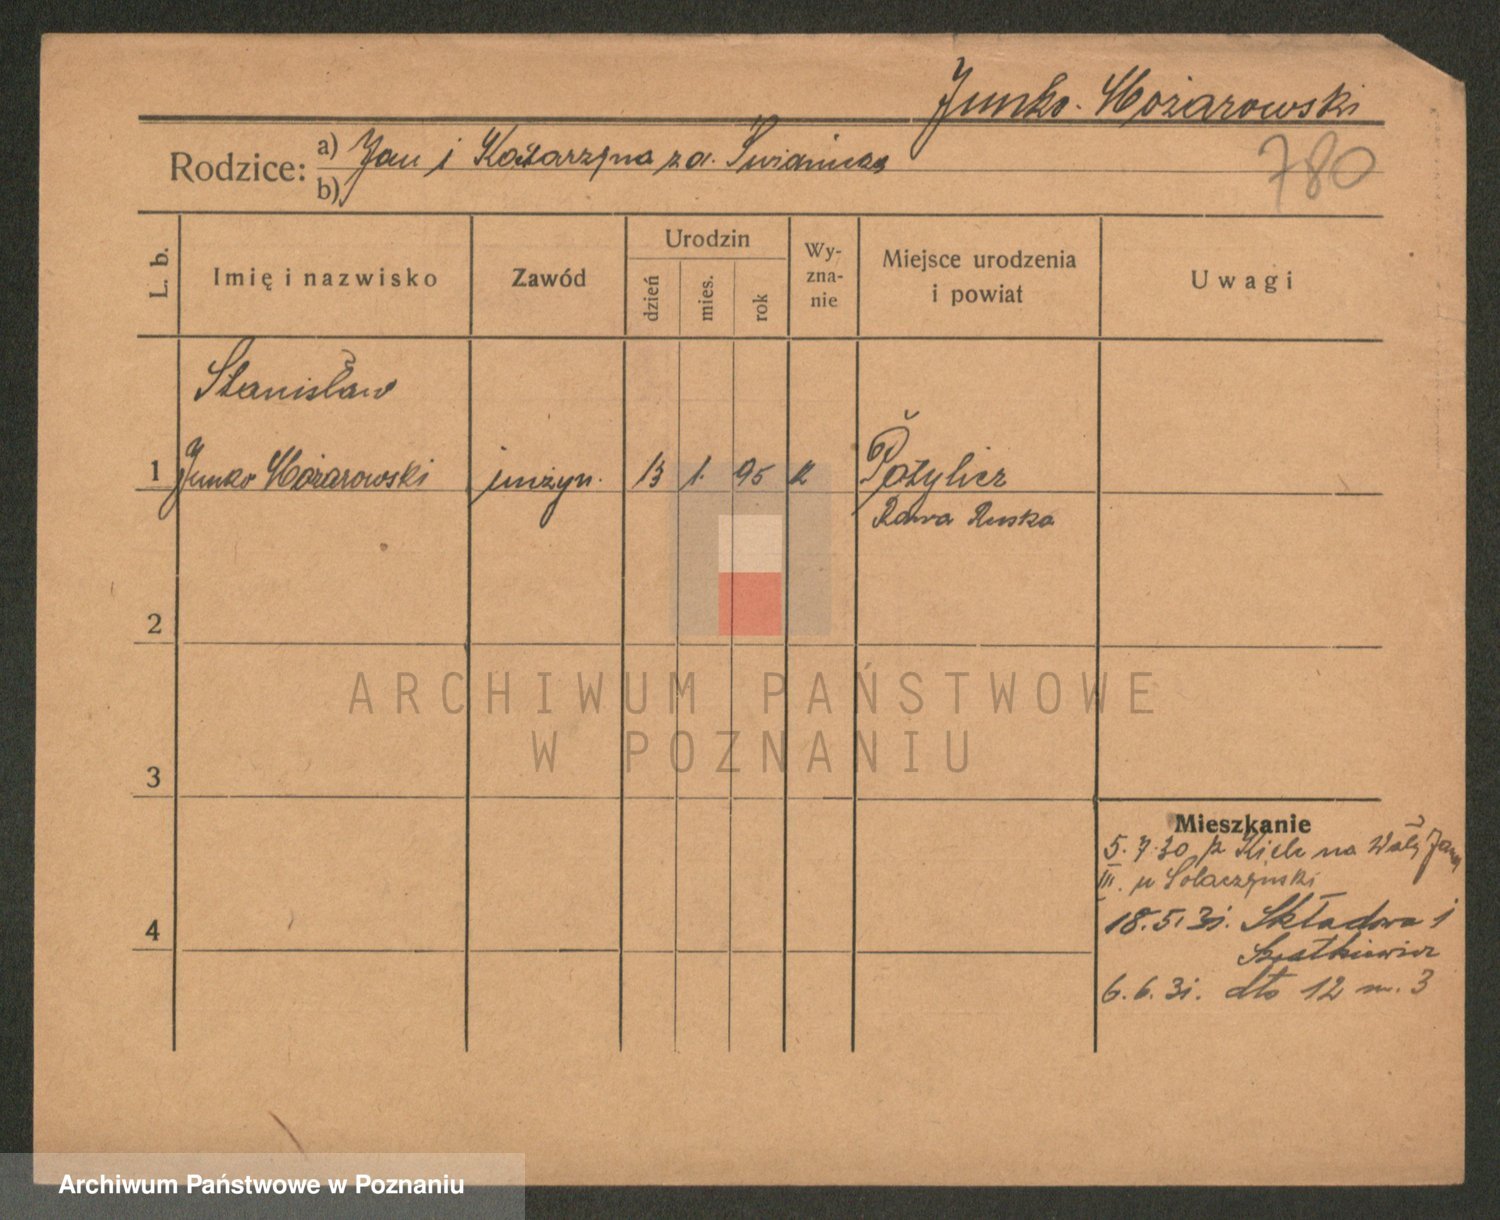 Junko-Możarowski
Rodzice: a) Jan i Katarzyna z d. Świdnicka
b)
780
L. b.
Imię i nazwisko
Zawód
Urodzin
dzień
mies.
rok
Wy-
zna-
nie
Miejsce urodzenia
i powiat
Uwagi
Stanisław
1 Junko Możarowski inżyn. 13 1. 95 Potylicz
Rawa Ruska
2
3
4
Mieszkanie
5.7.30 na Wały Jana
III.
18.5.31. Składowa 1
6.6.31. dto 12 m. 3
ARCHIWUM PAŃSTWOWE
W POZNANIU
Archiwum Państwowe w Poznaniu